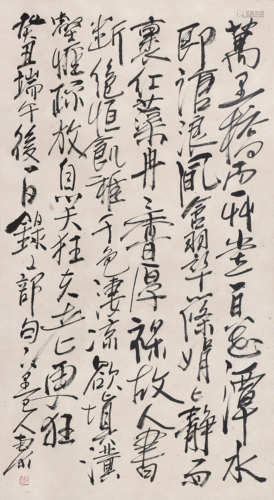 萬里橋西一艸堂百花潭水
即滄浪風含翠篠娟〻靜雨
裛紅蕖冉〻香厚祿故人書
斷絕恒飢稚子色淒涼欲填溝
壑惟疏放自笑狂夫老更狂
癸丑端午後一日錄工部句